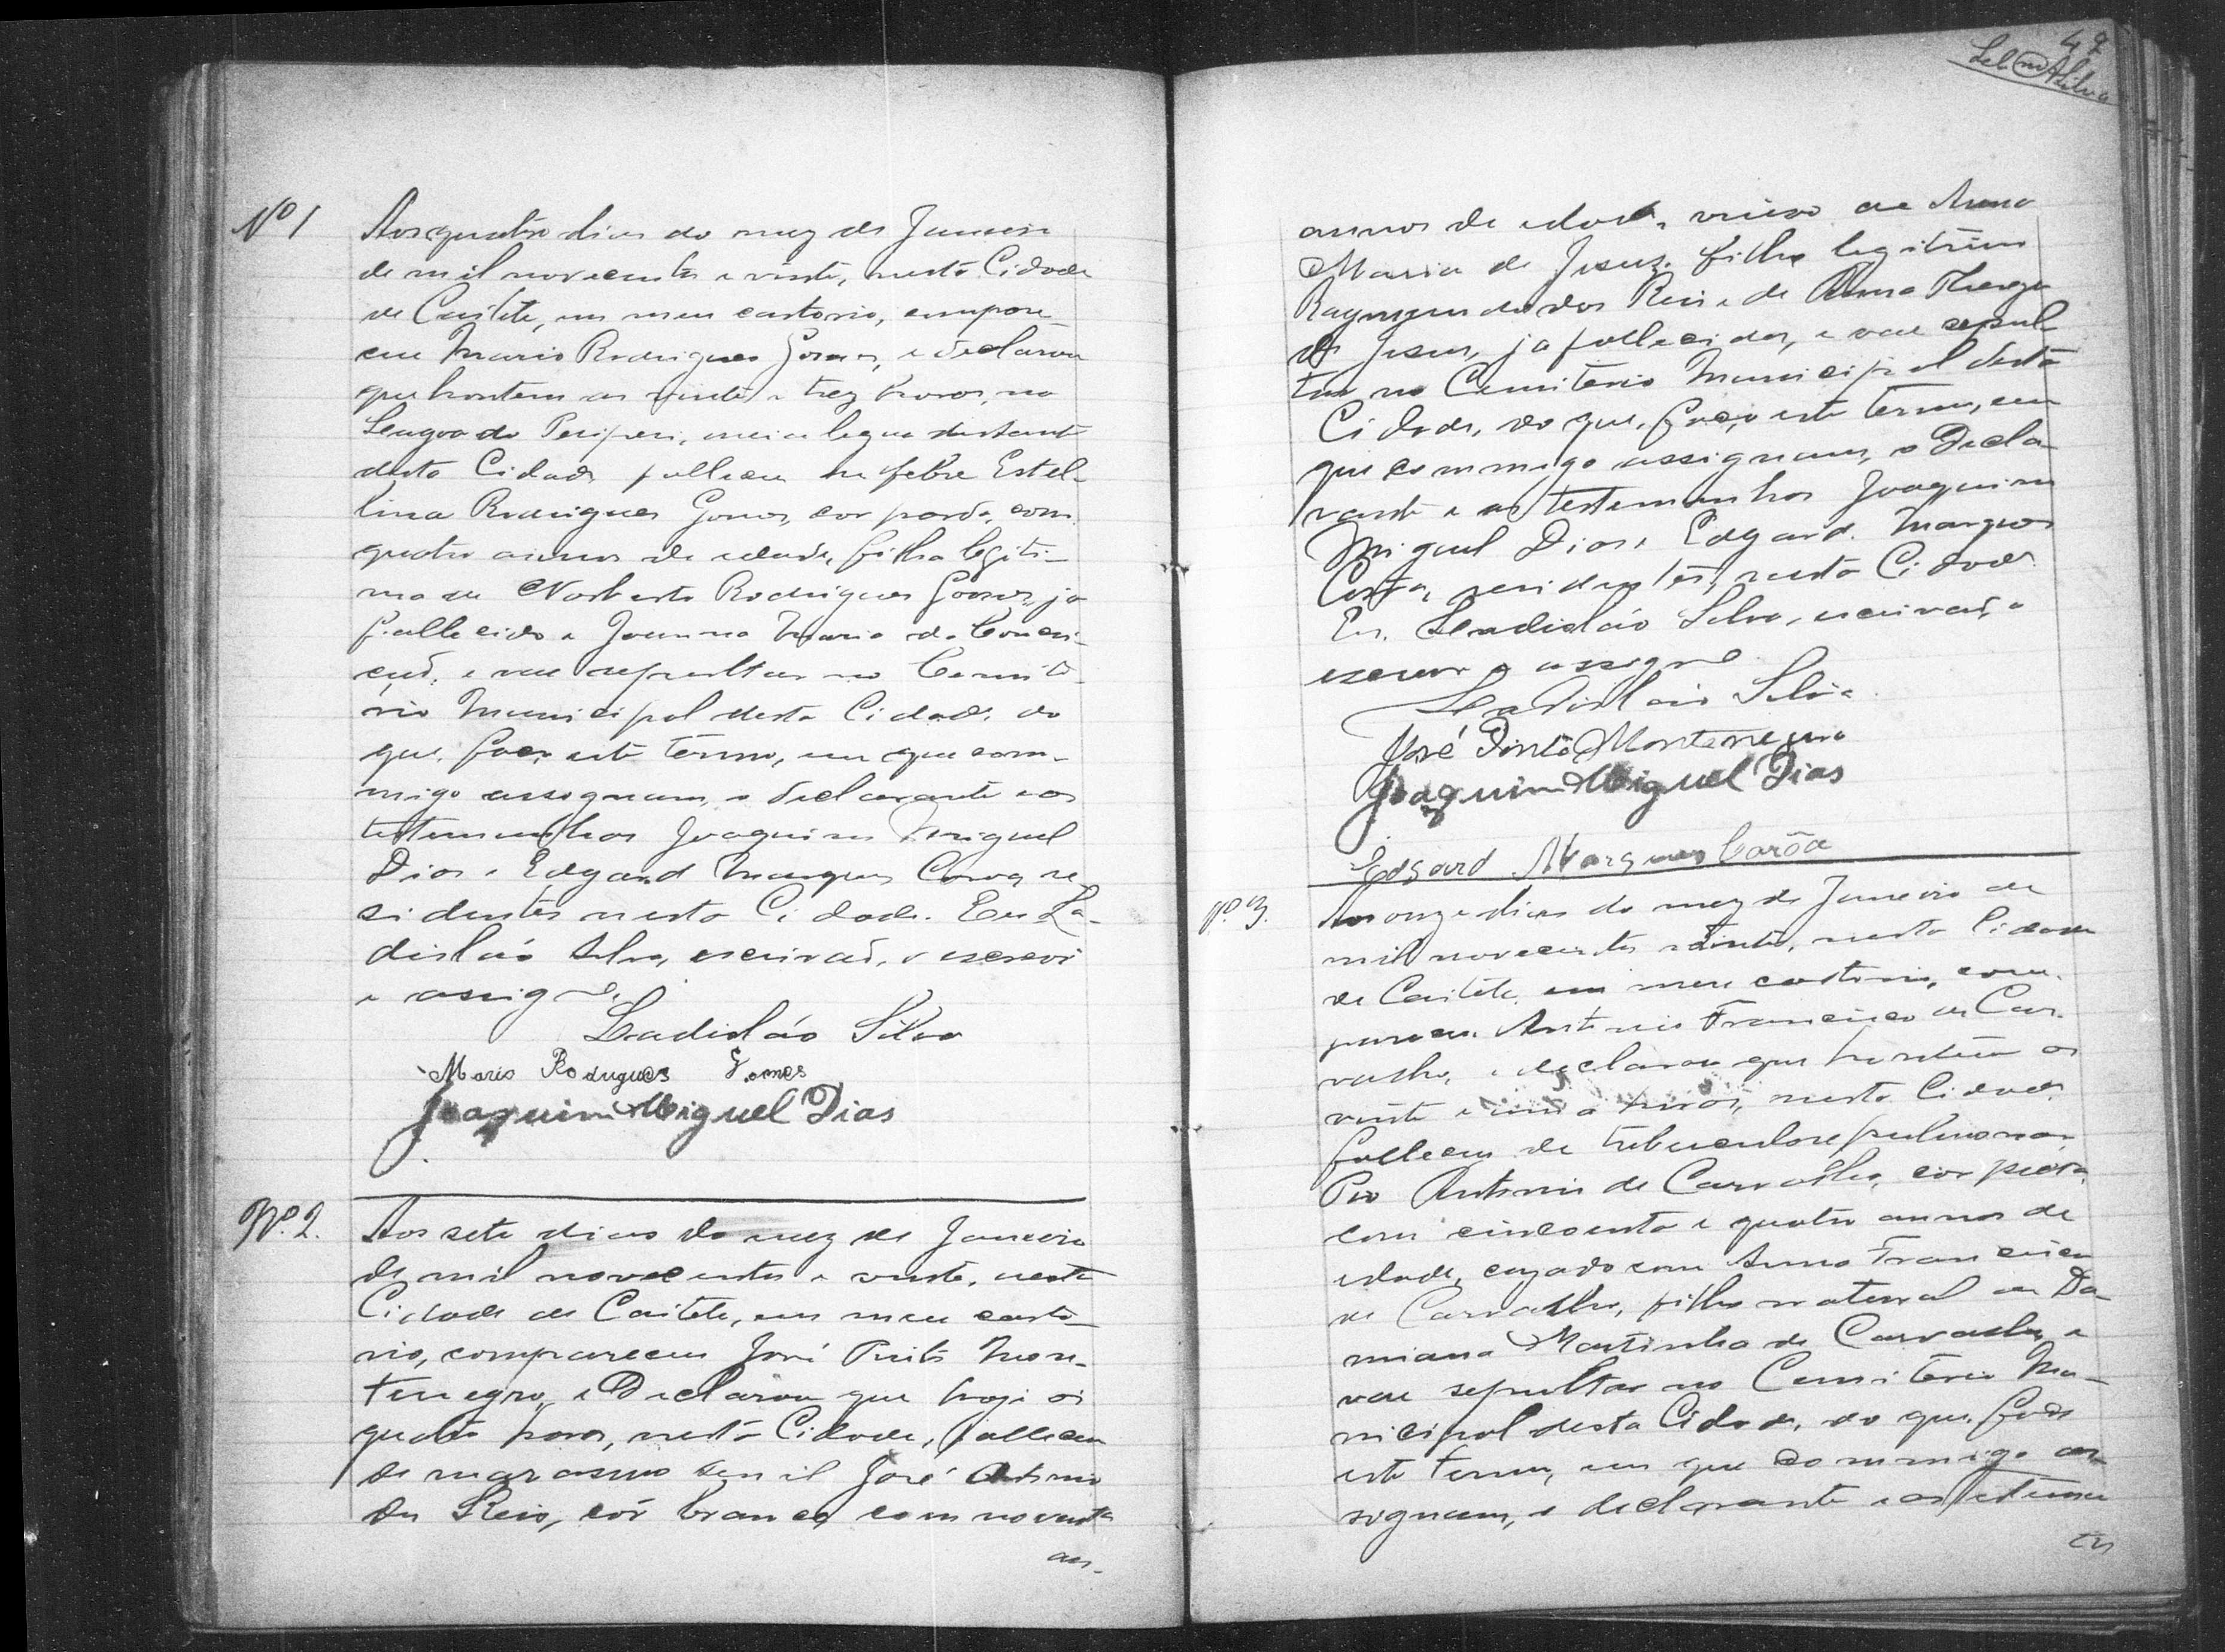 Nº 1
Aos quatro dias do mez de Janeiro
de mil novecentos e vinte, nesta Cidade
de Caiteté, em meu cartorio, compare-
ceu Mario Rodrigues Gomes, e declarou
que hontem as vinte e trez horas, no
Lagoa do Periperi, meia legua distante
desta Cidade falleceu de febre Estel-
lina Rodrigues Gomes, cor parda, com
quatro annos de edade, filha legiti-
ma de Norberto Rodrigues Gomes, ja
fallecido e Joanna Maria da Concei-
ção, e vae sepultar no Cemite-
rio Municipal desta Cidade, do
que, faço este termo, em que com-
migo assignam, o declarante e as
testemunhas Joaquim Miguel
Dias e Edgard Marques re-
sidentes nesta Cidade. Eu La-
disláo Silva, escrivão, o escrevi
e assigno.
Ladisláo Silva
Mario Rodrigues Gomes
Joaquim Miguel Dias
Nº. 2.
Aos sete dias do mez de Janeiro
de mil novecentos e vinte, nesta
Cidade de Caiteté, em meu carto-
rio, compareceu José Pinto Mon-
tenegro, e Declarou que hoje as
quatro horas, nesta Cidade, falleceu
de marasmo senil José Antonio
dos Reis, côr branca, com noventa
an-
47
Silva
annos de edade, viuvo de Anna
Maria de Jesus, filho legitimo
Raymundo dos Reis e de Anna Thereza
de Jesus, ja fallecidos, e vae sepul-
tar no Cemiterio Municipal desta
Cidade, do que, faço este termo, em
que commigo assignam, o Decla-
rante e as testemunhas Joaquim
Miguel Dias e Edgard Marques
residentes, nesta Cidade.
Eu, Ladisláo Silva, escrivão, o
escrevi e assigno
Ladisláo Silva
José Pinto Montenegro
Joaquim Miguel Dias
Edgard Marques
Nº. 3.
Aos onze dias do mez de Janeiro de
mil novecentos e vinte, nesta Cidade
de Caiteté, em meu cartorio, com-
pareceu Antonio Francisco de Car-
valho, e declarou que hontem as
vinte e uma horas, nesta Cidade,
falleceu de tuberculose pulmonar
Pio Antonio de Carvalho, côr preta,
com cincoenta e quatro annos de
edade, cazado com Anna Francisca
de Carvalho, filho natural de Da-
miana Martinha de Carvalho, e
vae sepultar no Cemiterio Mu-
nicipal desta Cidade, do que, faço
este termo, em que commigo as-
signam, o declarante e as testemu